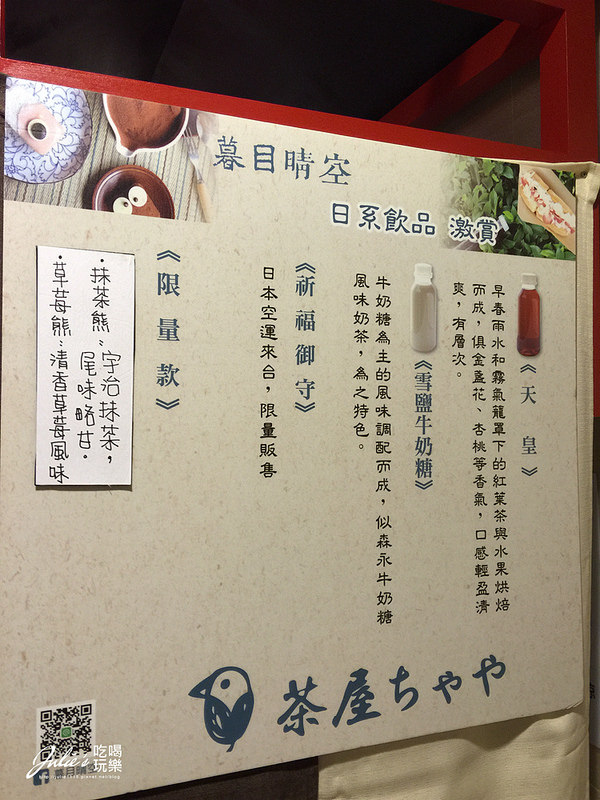 暮目晴空
日系飲品 激賞
《天皇》
早春雨水和霧氣籠罩下的紅葉茶與水果烘焙
而成，俱金盞花、杏桃等香氣，口感輕盈清
爽，有層次。
《雪鹽牛奶糖》
牛奶糖為主的風味調配而成，似森永牛奶糖
風味奶茶，為之特色。
《祈福御守》
日本空運來台，限量販售
《限量款》
·抹茶熊：宇治抹茶，
尾味略甘。
·草莓熊：清香草莓風味
茶屋ちゃや
Julie's 吃喝
玩樂